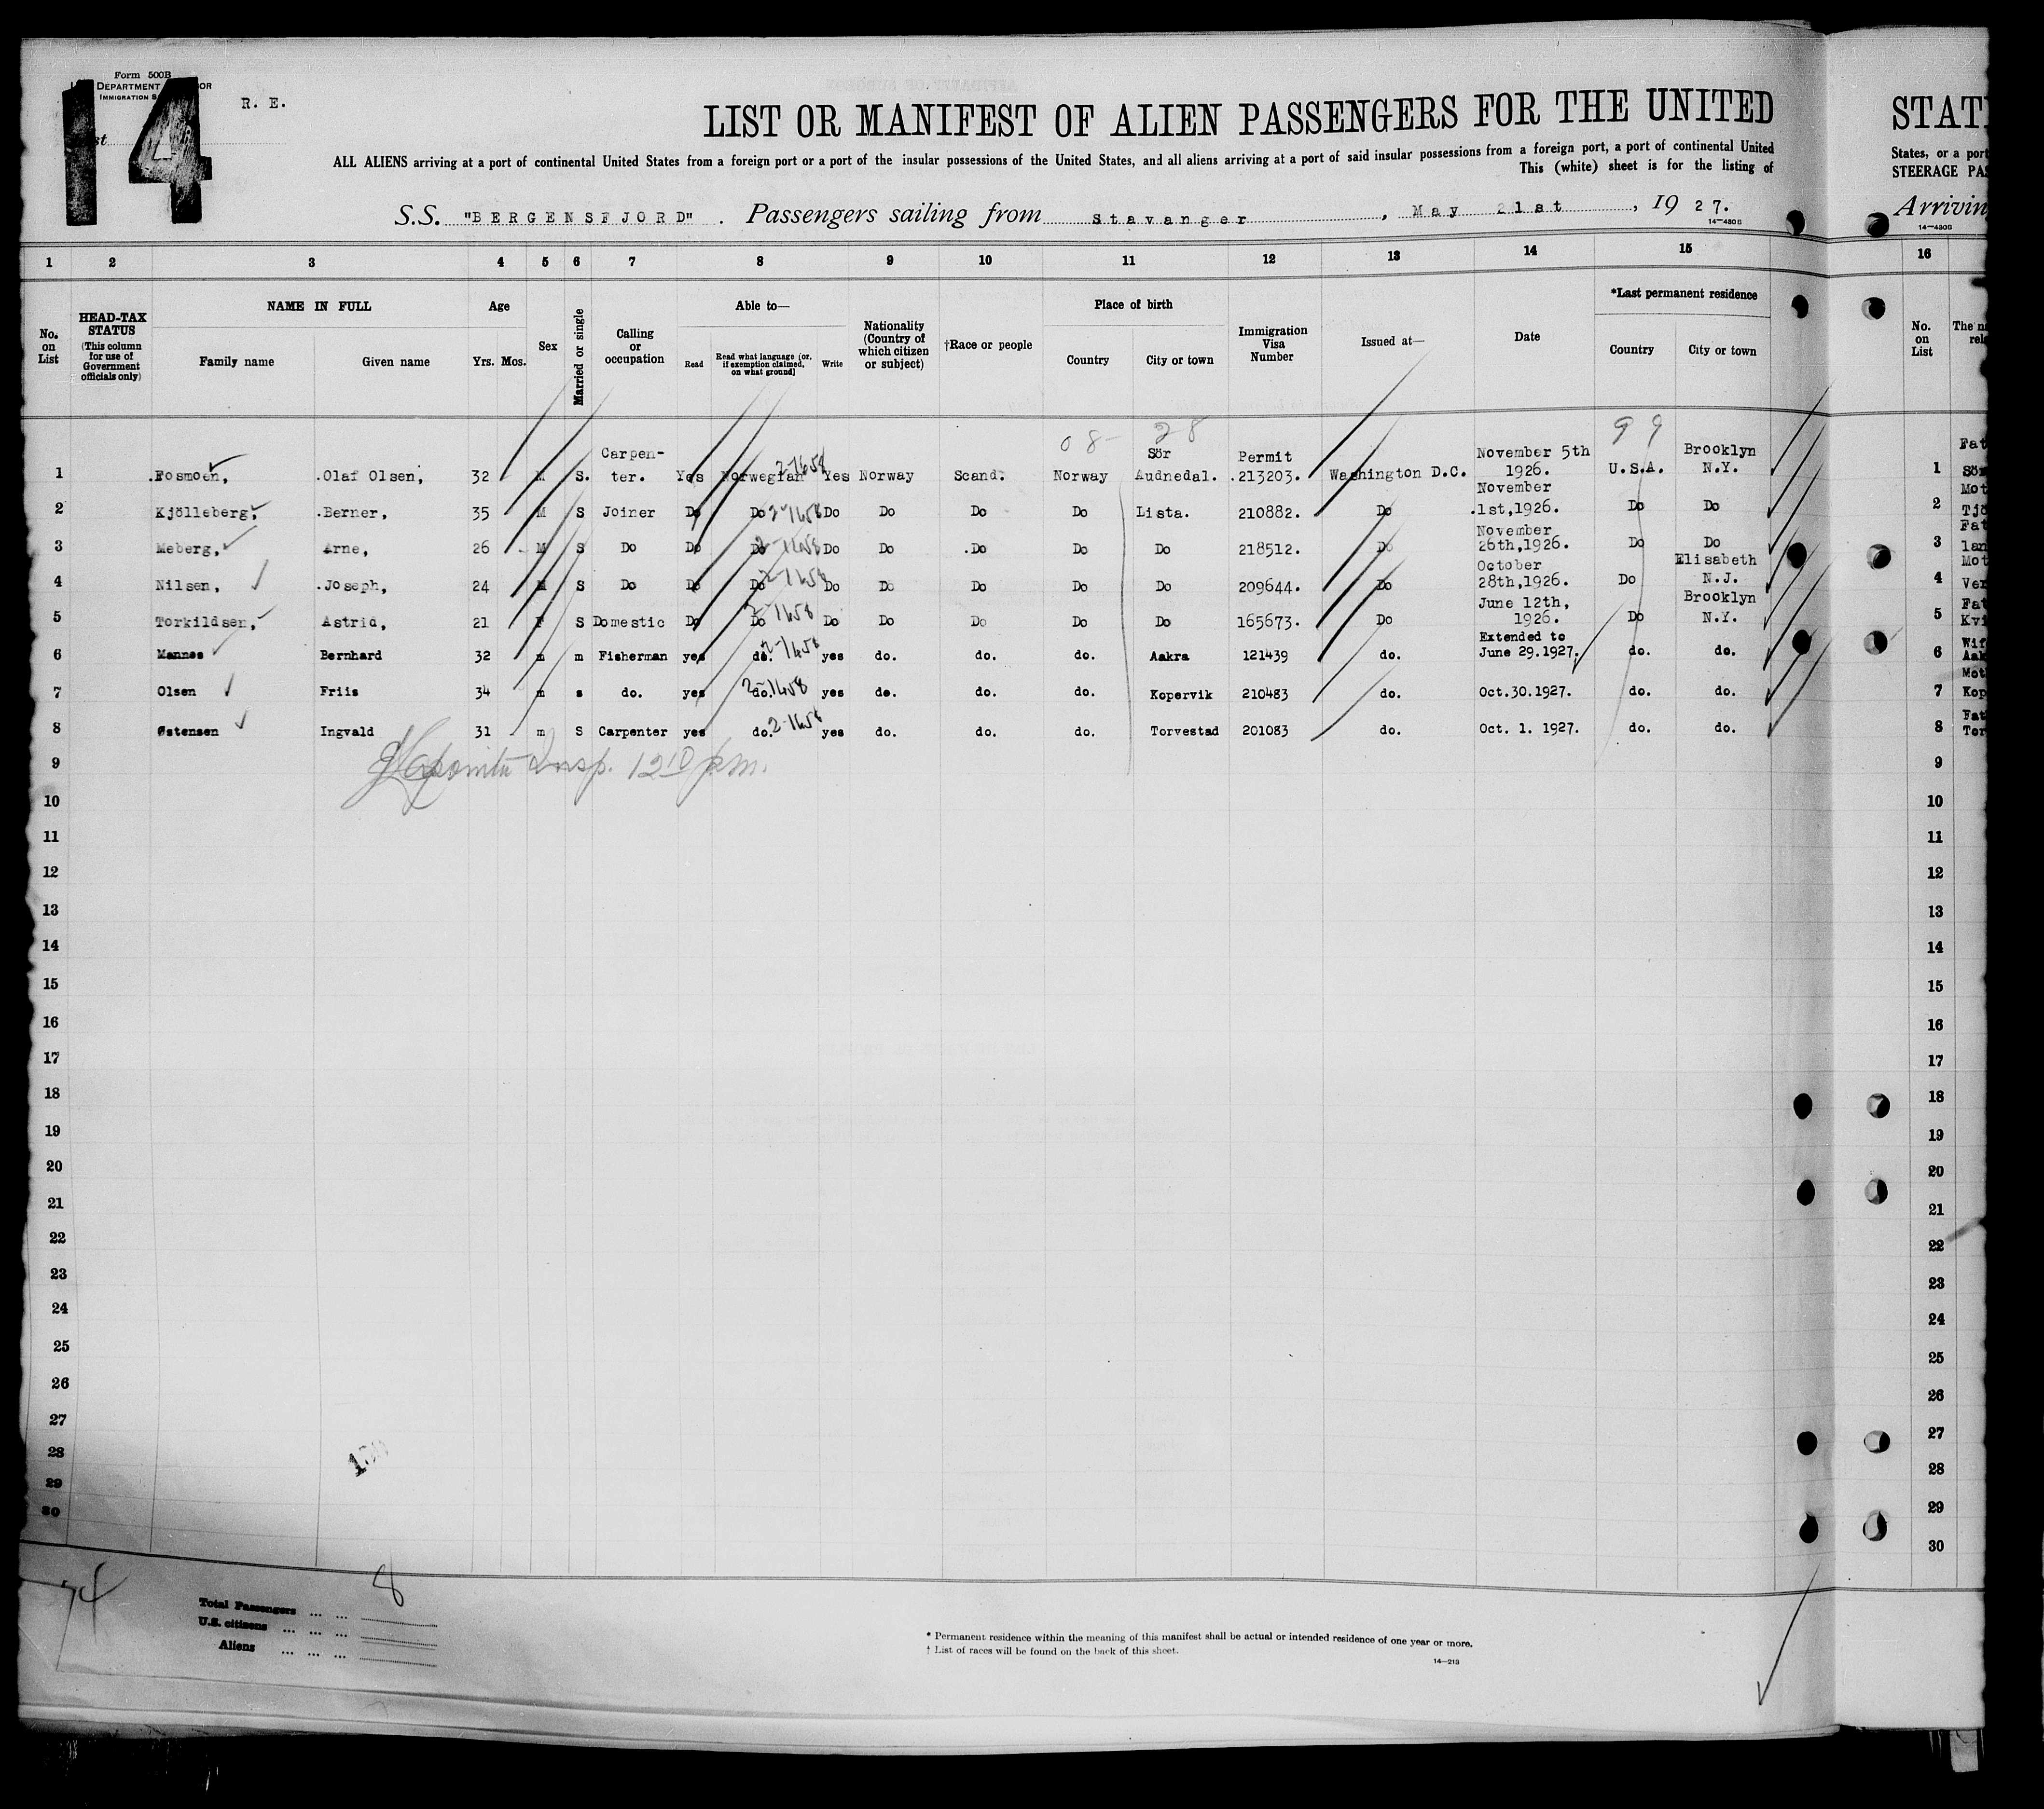 14
Form 500B
DEPARTMENT
IMMIGRATION
R. E.
LIST OR MANIFEST OF ALIEN PASSENGERS FOR THE UNITED
ALL ALIENS arriving at a port of continental United States from a foreign port or a port of the insular possessions of the United States, and all aliens arriving at a port of said insular possessions from a foreign port, a port of continental United
This (white) sheet is for the listing of
S.S. "BERGENSFJORD". Passengers sailing from Stavanger, May 21st, 1927.
14—430B
STAT
States, or a port
STEERAGE PAS
Arrivin
14—430B
1 2 3 4 5 6 7 8 9 10 11 12 13 14 15 16
No. on List
HEAD-TAX STATUS (This column for use of Government officials only)
NAME IN FULL
Family name Given name
Age
Yrs. Mos.
Sex
Married or single
Calling or occupation
Able to—
Read
Read what language [or, if exemption claimed, on what ground]
Write
Nationality (Country of which citizen or subject)
†Race or people
Place of birth
Country City or town
Immigration Visa Number
Issued at—
Date
*Last permanent residence
Country City or town
No. on List
08- 28 99
1 Fosmoen, Olaf Olsen, 32 M S. Carpen-ter. Yes Norwegian 2-1658 Yes Norway Scand. Norway Sör Audnedal. Permit 213203. Washington D.C. November 5th 1926. U.S.A. Brooklyn N.Y. 1
2 Kjölleberg, Berner, 35 M S Joiner Do Do 2-1658 Do Do Do Do Lista. 210882. Do November 1st,1926. Do Do 2
3 Meberg, Arne, 26 M S Do Do Do 2-1658 Do Do Do Do Do 218512. Do November 26th,1926. Do Do 3
4 Nilsen, Joseph, 24 M S Do Do Do 2-1658 Do Do Do Do Do 209644. Do October 28th,1926. Do Elisabeth N.J. 4
5 Torkildsen, Astrid, 21 F S Domestic Do Do 2-1658 Do Do Do Do Do 165673. Do June 12th, 1926. Do Brooklyn N.Y. 5
6 Mannes Bernhard 32 m m Fisherman yes do. 2-1658 yes do. do. do. Aakra 121439 do. Extended to June 29.1927. do. do. 6
7 Olsen Friis 34 m s do. yes do. 2-1658 yes do. do. do. Kopervik 210483 do. Oct.30.1927. do. do. 7
8 Østensen Ingvald 31 m S Carpenter yes do. 2-1658 yes do. do. do. Torvestad 201083 do. Oct. 1. 1927. do. do. 8
9 Insp. 12 10 pm. 9
10 10
11 11
12 12
13 13
14 14
15 15
16 16
17 17
18 18
19 19
20 20
21 21
22 22
23 23
24 24
25 25
26 26
27 27
28 28
29 29
30 30
74
8
Total Passengers ... ...
U.S. citizens ... ... ...
Aliens ... ... ...
* Permanent residence within the meaning of this manifest shall be actual or intended residence of one year or more.
† List of races will be found on the back of this sheet.
14—213